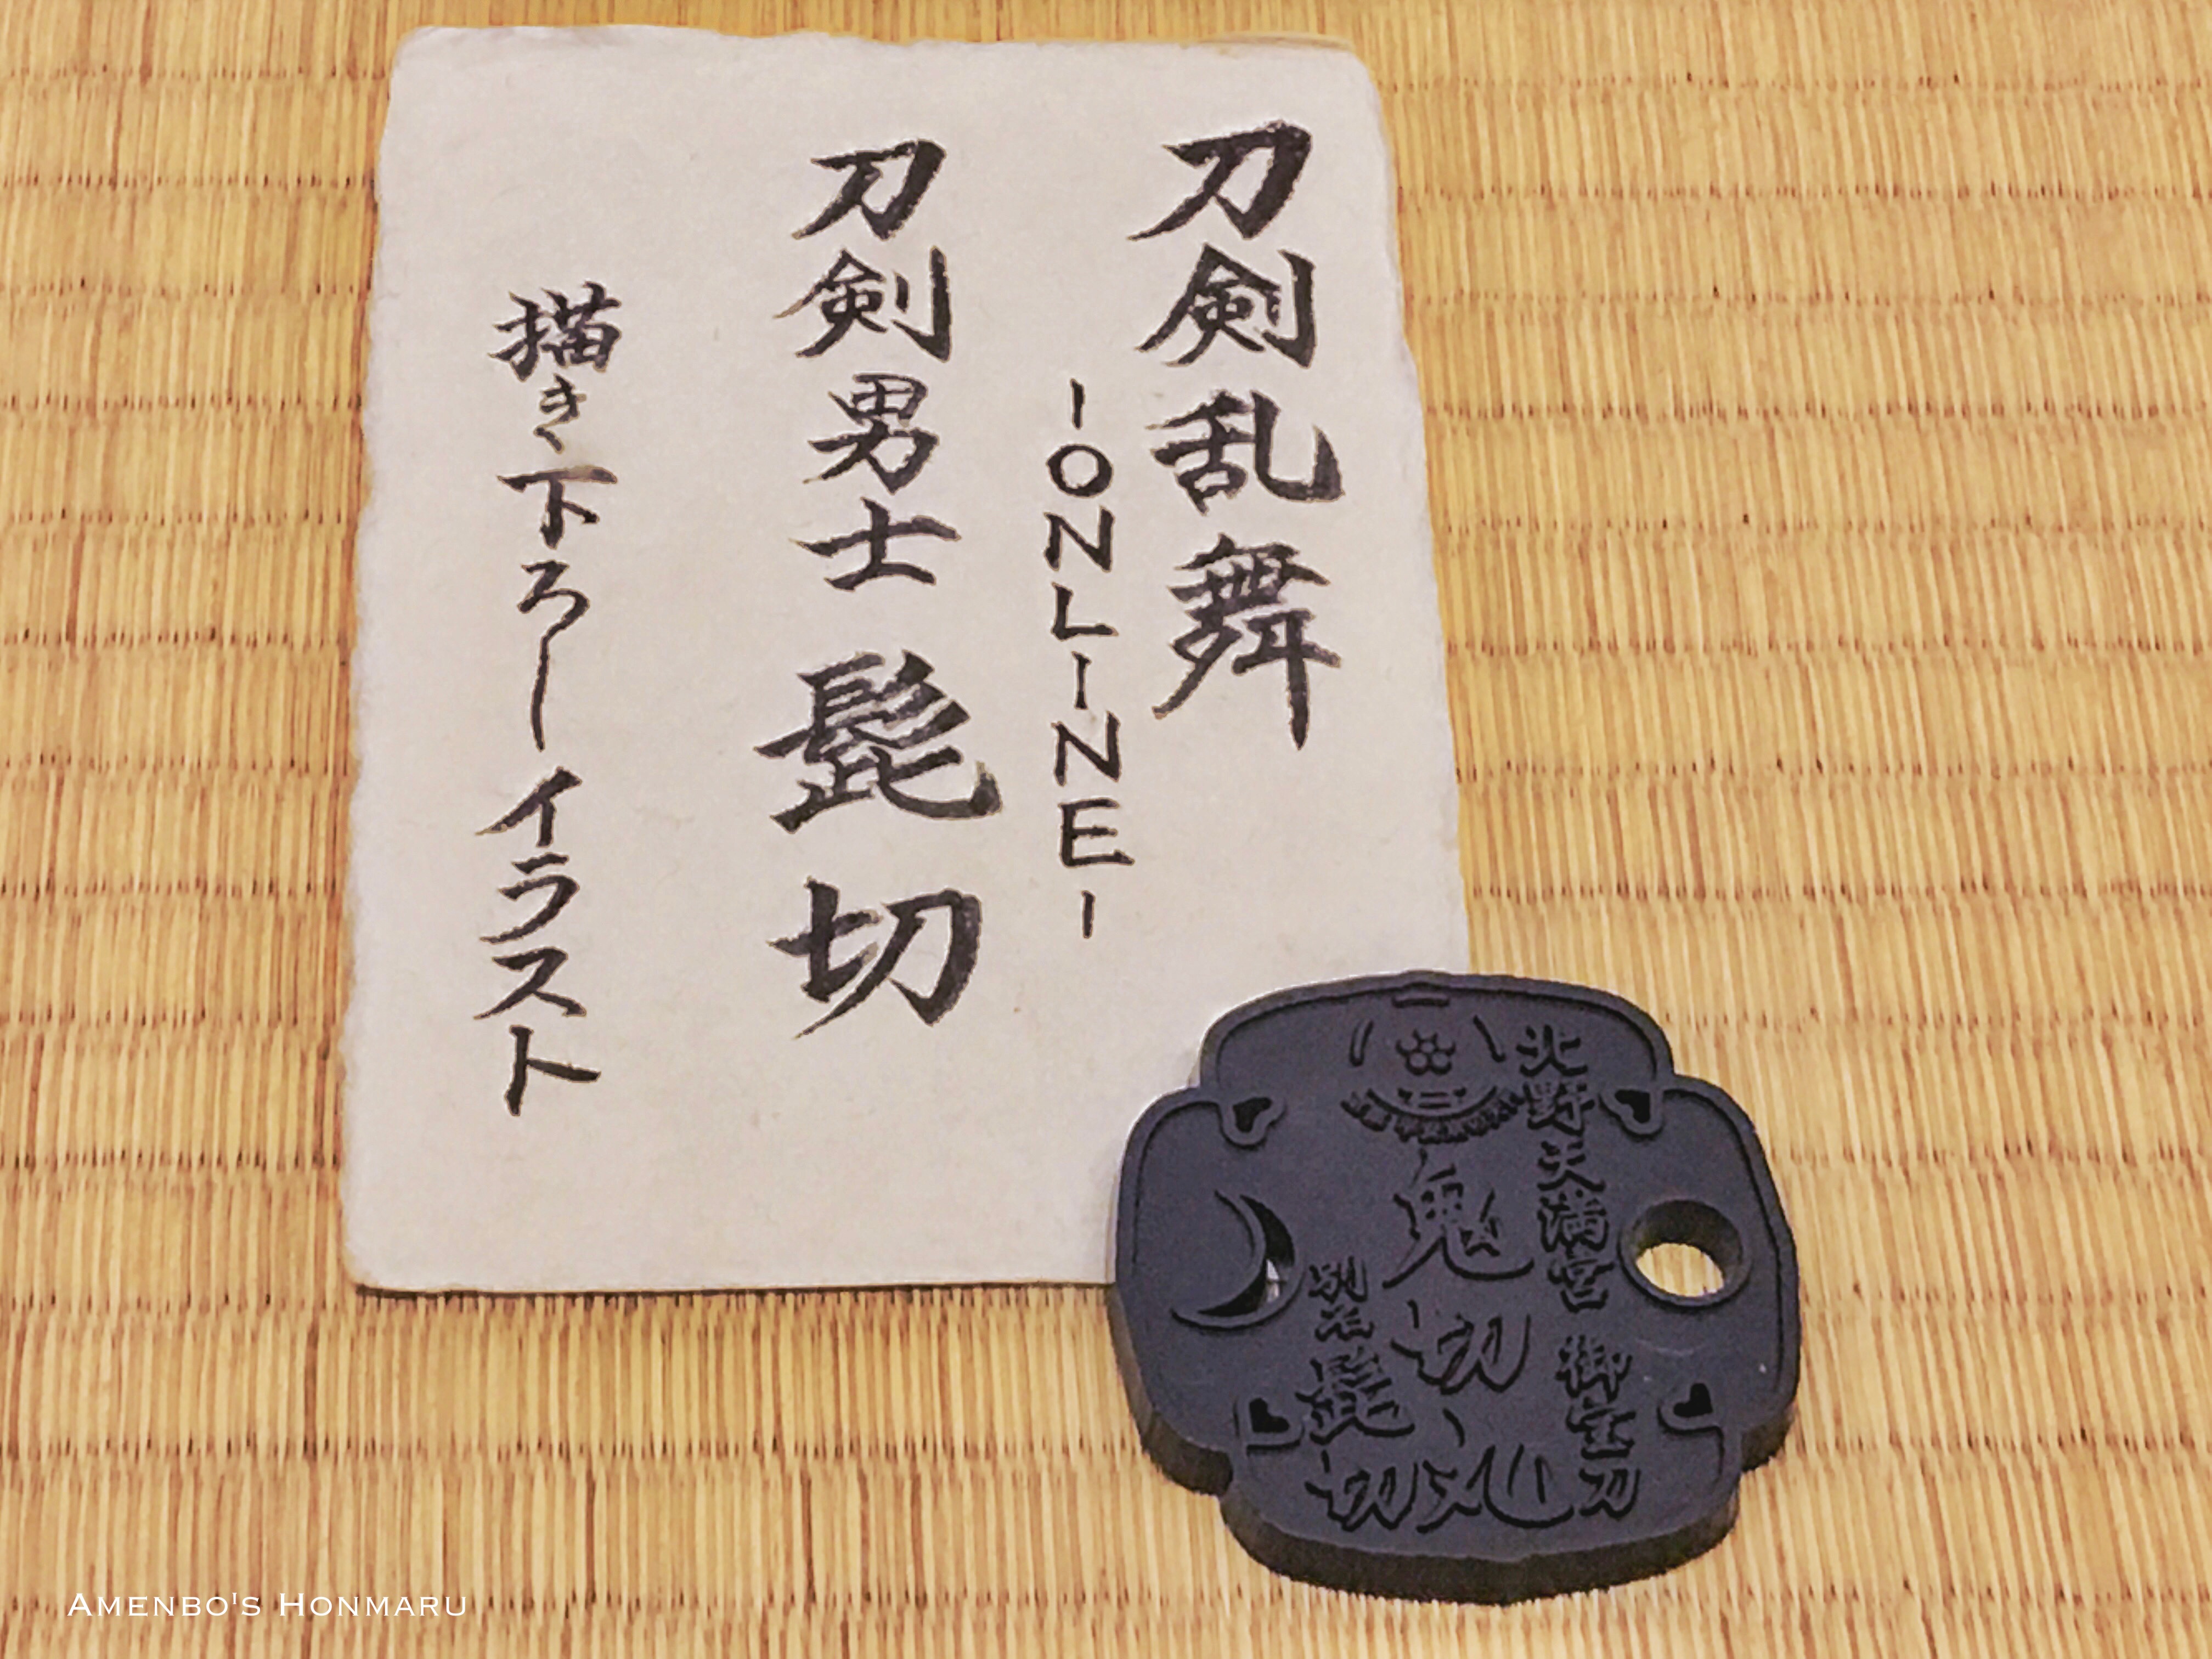 刀剣乱舞
-ONLINE-
刀剣男士 髭切
描き下ろしイラスト
北野天満宮 御宝刀
鬼切丸
別名 髭切
AMENBO'S HONMARU